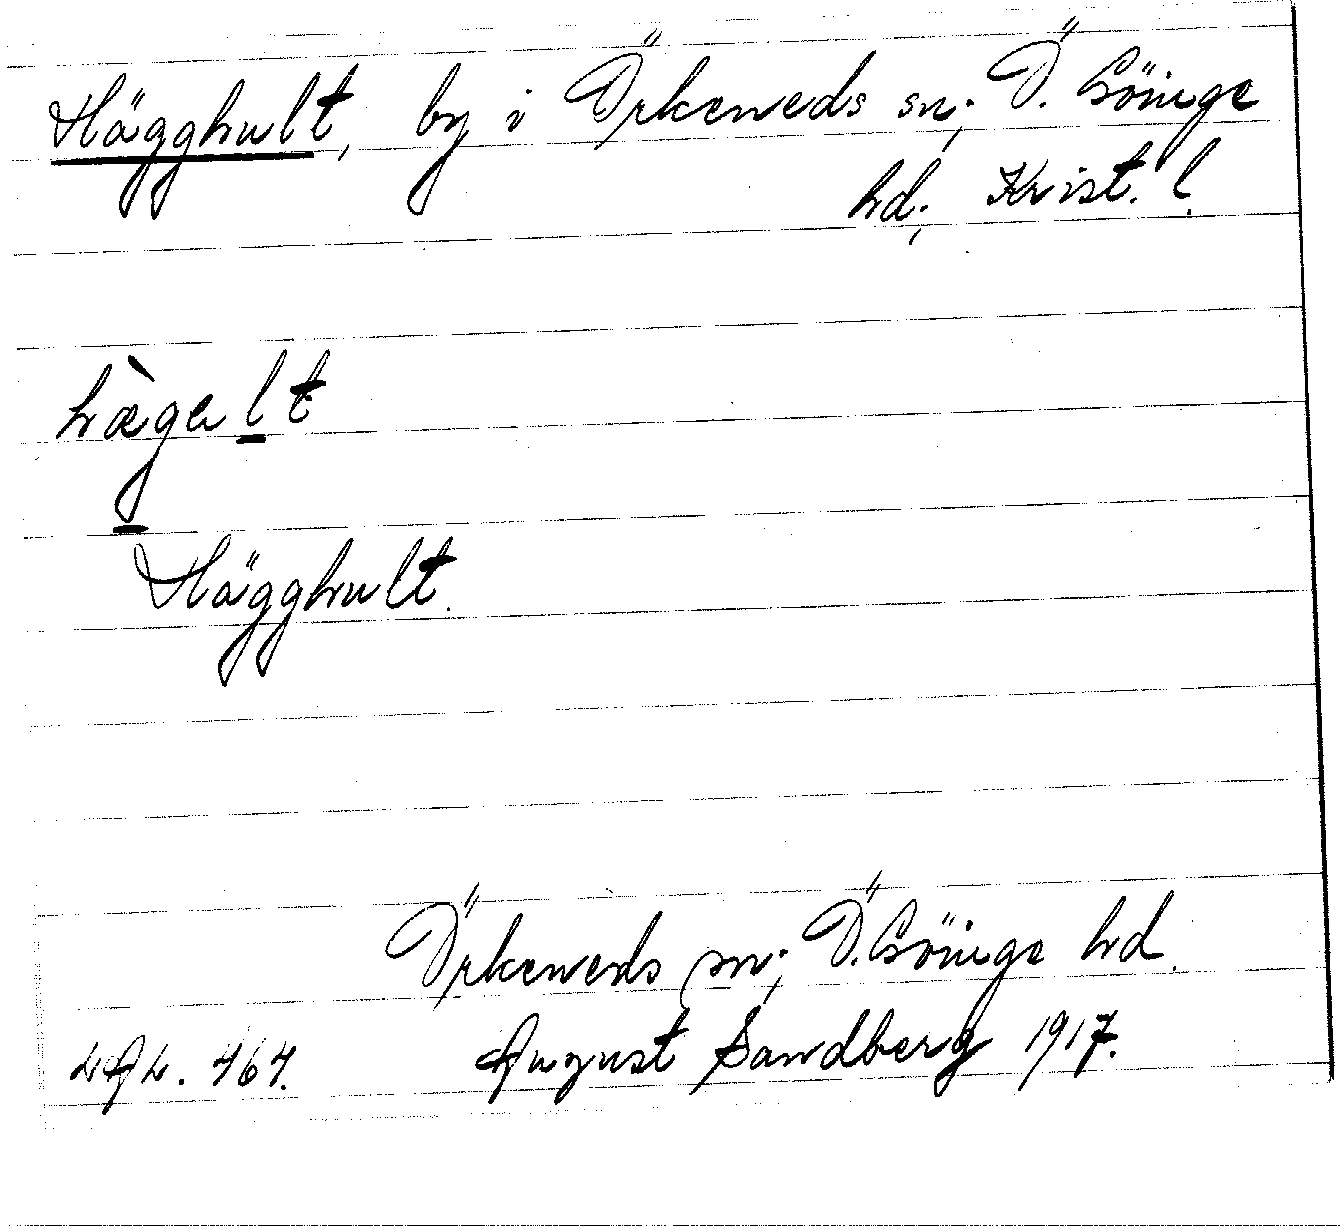 Hägghult, by i Örkeneds sn; Ö. Göinge
hd; Krist. l.
hæ̀gelt
Hägghult.
Örkeneds sn; Ö. Göinge hd.
August Sandberg 1917.